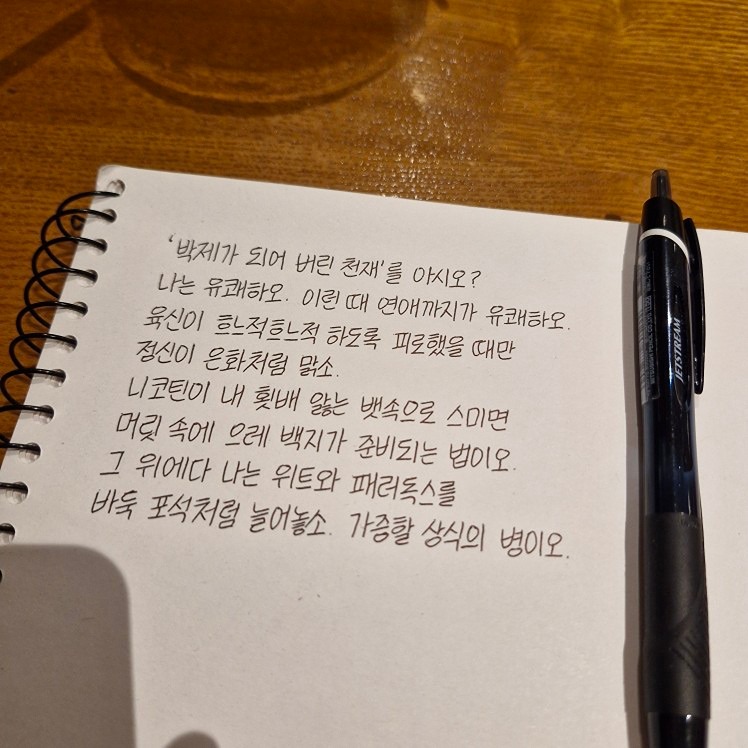 '박제가 되어 버린 천재'를 아시오?
나는 유쾌하오. 이런 때 연애까지가 유쾌하오.
육신이 흐느적흐느적 하도록 피로했을 때만
정신이 은화처럼 맑소.
니코틴이 내 횟배 앓는 뱃속으로 스미면
머릿 속에 으레 백지가 준비되는 법이오.
그 위에다 나는 위트와 패러독스를
바둑 포석처럼 늘어놓소. 가증할 상식의 병이오.
JETSTREAM